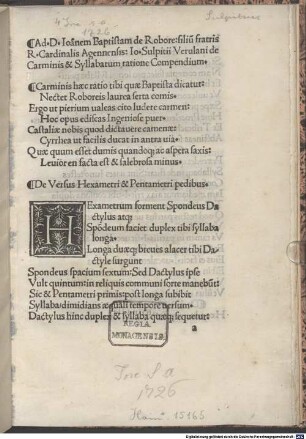 4° Inc. s. a.
1726
¶Ad.D.Ioãnem Baptistam de Robore:filiũ fratris
R.Cardinalis Agennensis: Io.Sulpitii Verulani de
Carminis & Syllabarum ratione Compendium.
¶Carminis hæc ratio tibi quæ Baptista dicatur:
Nectet Roboreis laurea serta comis.
Ergo ut pierium ualeas cito ludere carmen:
Hoc opus edisces Ingeniose puer.
Castaliæ nobis quod dictauere camenæ:
Cyrrhea ut facilis ducat in antra uia.
Quæ quum esset dumis quandoq; ac aspera saxis:
Leuior en facta est & salebrosa minus.
¶De Versus Hexametri & Pentametri pedibus.
HExametrum forment Spondeus Da
ctylus atq;
Spõdeum faciet duplex tibi syllaba
longa.
Longa duæq; breues alacer tibi Da
ctyle surgunt
Spondeus spacium sextum:Sed Dactylus ipse
Vult quintum:in reliquis communi sorte manebũt
Sic & Pentametri primis:post longa subibit
Syllaba:dimidians æquali tempore uersum.
Dactylus hinc duplex & syllaba quæq; sequetur
a
REGIA
MONACENSIS
Inc. s. a.
1726
Hain 15165